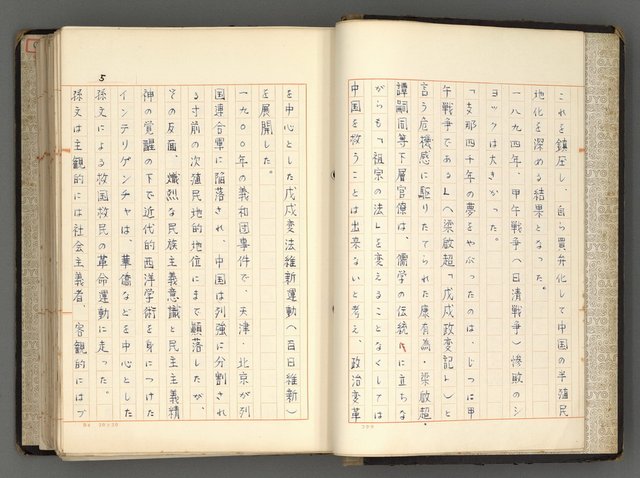 これを鎮圧し、自ら買弁化して中国の半殖民
地化を深める結果となった。
一八九四年、甲午戦争(日清戦争)惨敗のシ
ョックは大きかった。
「支那四千年の夢をやぶったのは、じつに甲
午戦争である」(梁啟超「戊戌政変記」)と
言う危機感に駆りたてられた康有為・梁啟超・
譚嗣同等下層官僚は、儒学の伝統に立ちな
がらも「祖宗の法」を変えることなくしては
中国を救うことは出来ないと考え、政治変革
5
を中心とした戊戌変法維新運動(百日維新)
を展開した。
一九〇〇年の義和団事件で、天津・北京が列
国連合軍に陥落され、中国は列強に分割され
る寸前の次殖民地的地位にまで顚落したが、
その反面、熾烈な民族主義意識と民主主義精
神の覚醒の下で近代的西洋学術を身につけた
インテリゲンチャは、華僑などを中心とした
孫文による救国救民の革命運動に走った。
孫文は主観的には社会主義者、客観的にはブ
20×20